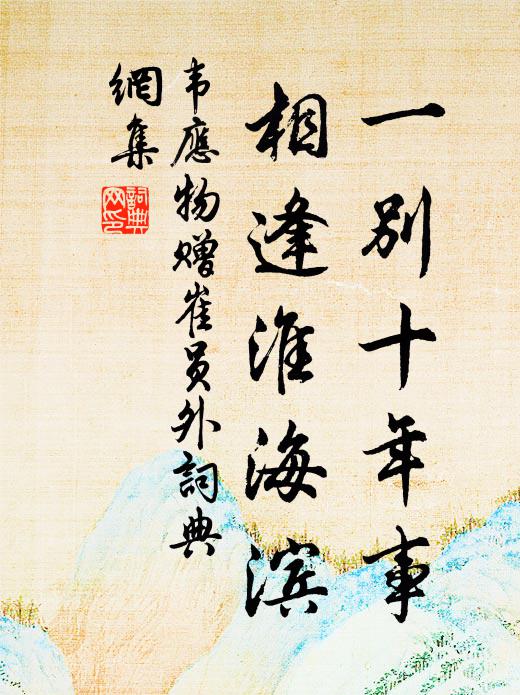 一别十年事
相逢淮海滨
韦應物赠崔员外詞典
網集
詞典
网印